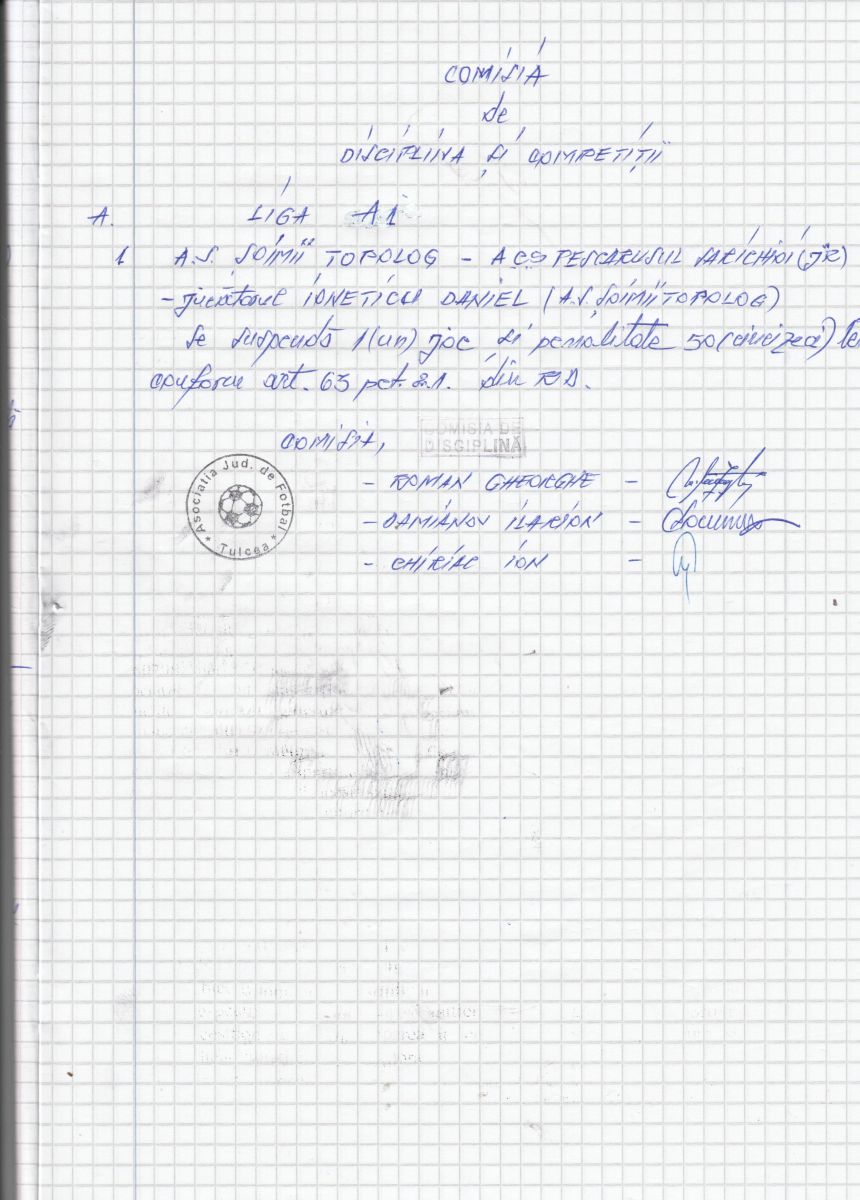 COMISIA
de
DISCIPLINA si COMPETIȚII
A. LIGA A1
1 A.S. SOIMII TOPOLOG - ACS PESCARUSUL SARICHIOI (JR)
- jucătorul IONETICU DANIEL (A.S. SOIMII TOPOLOG)
se suspendă 1(un) joc si penalitate 50(cincizeci) lei
conform art. 63 pct. 2.1. din RD.
COMISIA,
COMISIA DE
DISCIPLINĂ
- ROMAN GHEORGHE -
- DAMIANOV ILARION -
- CHIRIAC ION -
Asociatia Jud. de Fotbal
* Tulcea *